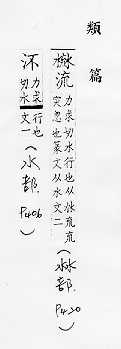 類篇
㵉流 力求切水行也从沝㐬㐬
突忽也篆文从水文二 (沝部 P420)
力求切水行也
文一 (水部 P406)